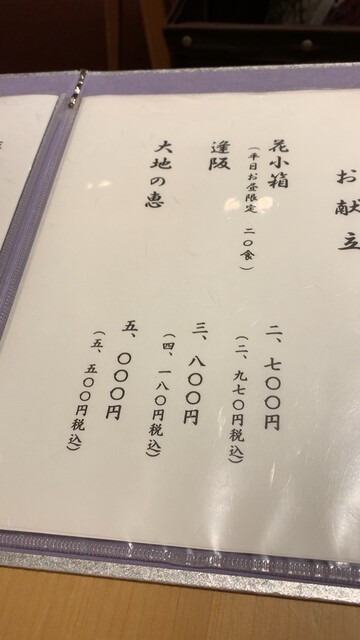 お献立
花小箱
(平日お昼限定 二〇食)
二、七〇〇円
(二、九七〇円税込)
逢阪
三、八〇〇円
(四、一八〇円税込)
大地の恵
五、〇〇〇円
(五、五〇〇円税込)